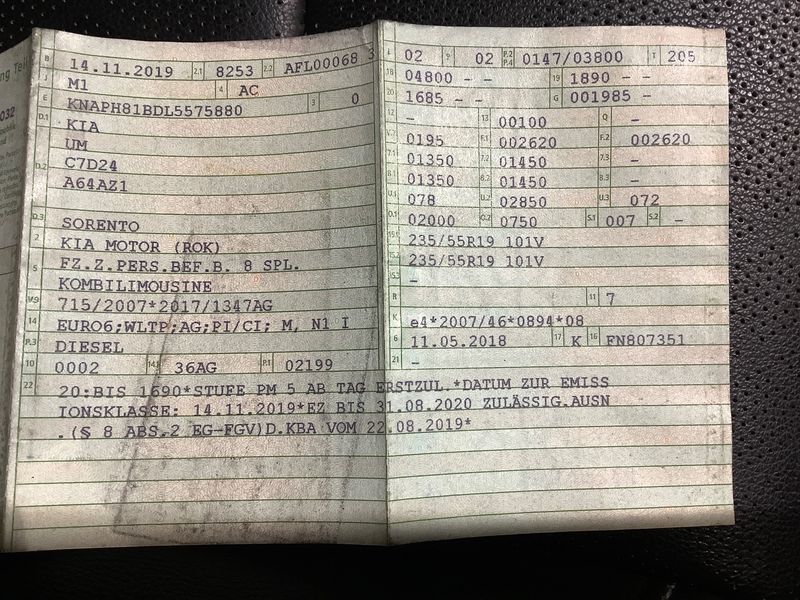 ng Teil
032
B 14.11.2019 2.1 8253 2.2 AFL00068 3
J M1 4 AC
E KNAPH81BDL5575880 3 0
D.1 KIA
UM
D.2 C7D24
A64AZ1
D.3 SORENTO
2 KIA MOTOR (ROK)
5 FZ.Z.PERS.BEF.B. 8 SPL.
KOMBILIMOUSINE
V.9 715/2007*2017/1347AG
14 EURO6;WLTP;AG;PI/CI; M, N1 I
P.3 DIESEL
10 0002 14.1 36AG P.1 02199
22 20:BIS 1690*STUFE PM 5 AB TAG ERSTZUL.*DATUM ZUR EMISS
IONSKLASSE: 14.11.2019*EZ BIS 31.08.2020 ZULÄSSIG.AUSN
.(§ 8 ABS.2 EG-FGV)D.KBA VOM 22.08.2019*
L 02 9 02 P.2 P.4 0147/03800 T 205
18 04800 - - 19 1890 - -
20 1685 - - G 001985 -
12 - 13 00100 Q -
V.7 0195 F.1 002620 F.2 002620
7.1 01350 7.2 01450 7.3 -
8.1 01350 8.2 01450 8.3 -
U.1 078 U.2 02850 U.3 072
O.1 02000 O.2 0750 S.1 007 S.2 -
15.1 235/55R19 101V
15.2 235/55R19 101V
15.3 -
R 11 7
K e4*2007/46*0894*08
6 11.05.2018 17 K 16 FN807351
21 -